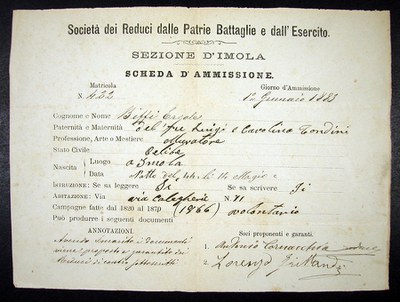 Società dei Reduci dalle Patrie Battaglie e dall'Esercito.
SEZIONE D'IMOLA
SCHEDA D'AMMISSIONE.
Matricola
N. 422
Giorno d'Ammissione
1° Gennaio 1883
Cognome e Nome Biffi Ercole
Paternità e Maternità del fu Luigi e Carolina Tondini
Professione, Arte o Mestiere Muratore
Stato Civile Celibe
Nascita Luogo Imola
Data Notte del
ISTRUZIONE: Se sa leggere Si Se sa scrivere Si
ABITAZIONE: Via N. 71
Campagne fatte dal 1820 al 1870 (1866) volontario
Può produrre i seguenti documenti
ANNOTAZIONI
Avendo smarrito i documenti
viene proposto e garantito dai
sottoscritti
Soci proponenti e garanti.
1. Antonio
2. Lorenzo